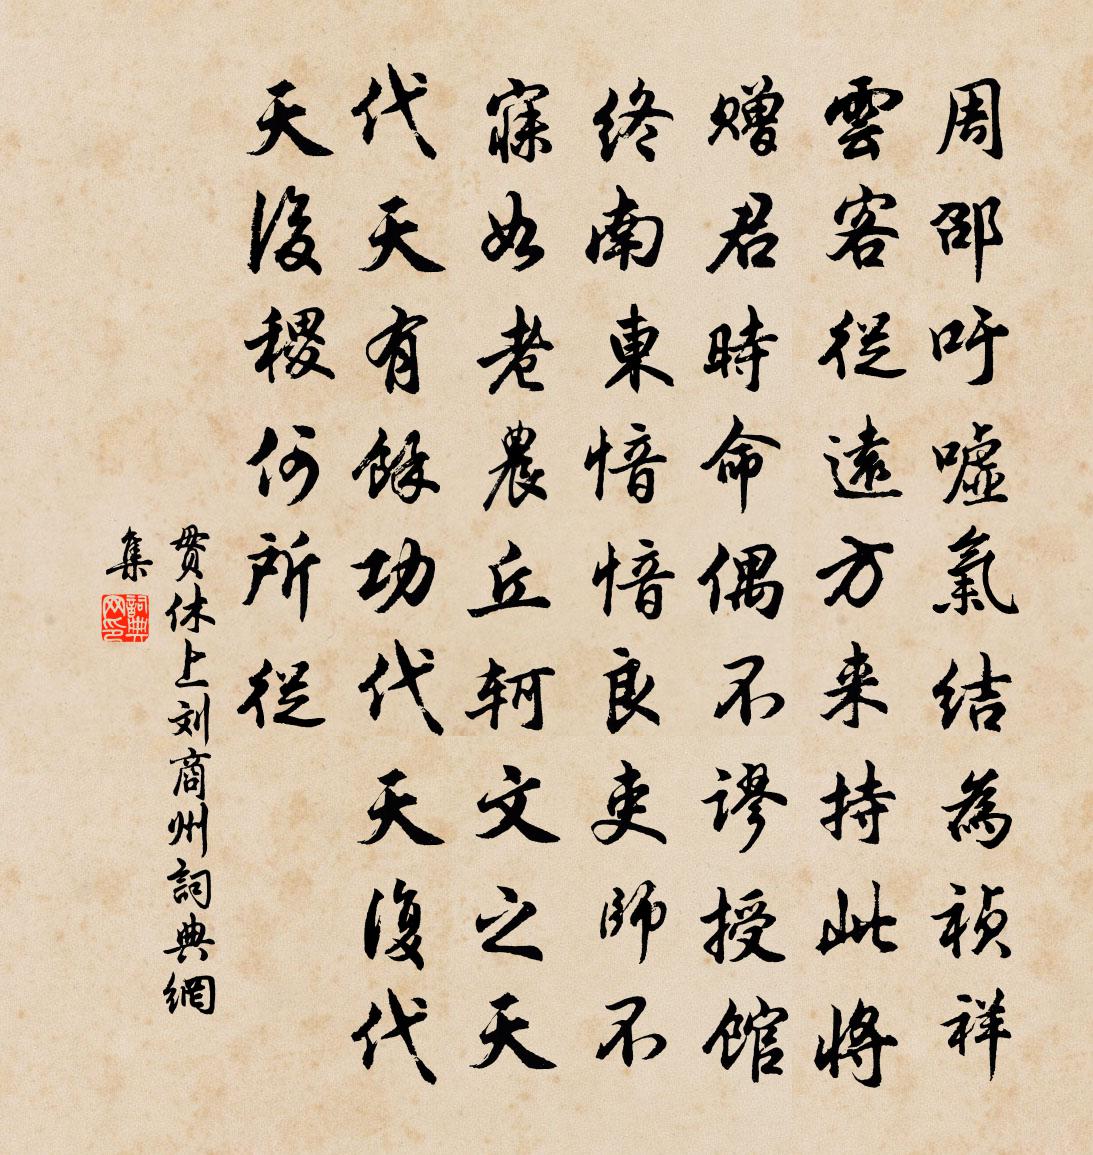 周邵吁噓氣結為禎祥
雲客從遠方来持此將
贈君時命偶不謬授館
終南東愔愔良吏師不
寐如老農丘軻文之天
代天有餘功代天復代
天後稷何所從
貫休上刘商州詞典網
集
詞典
网印